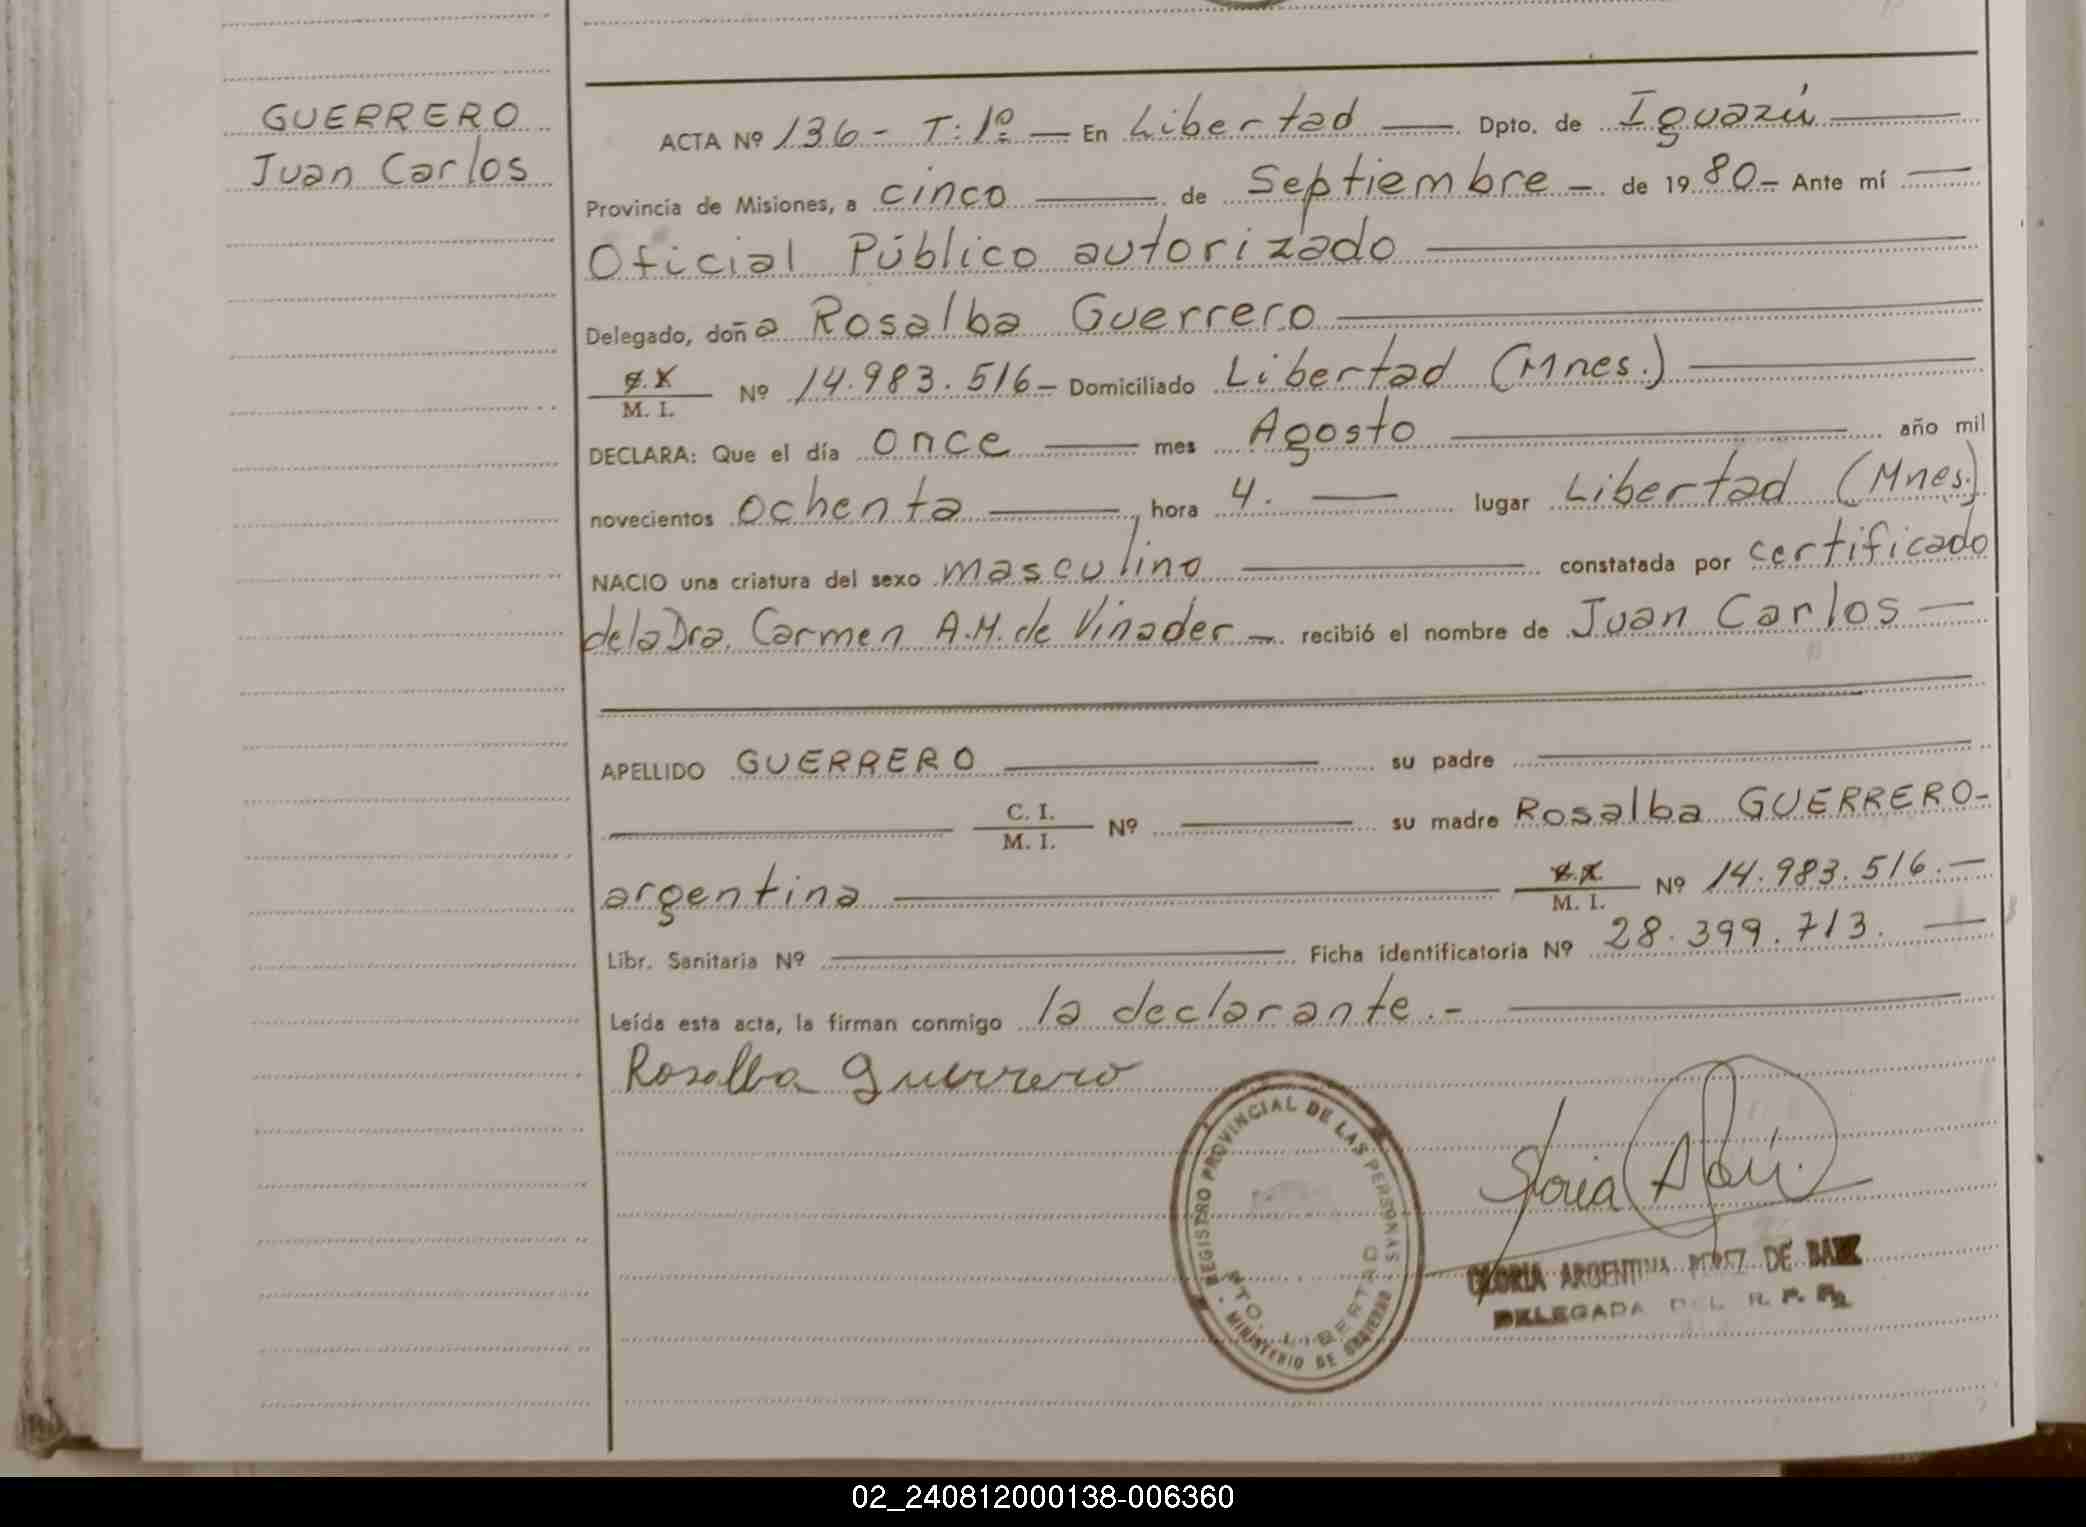 GUERRERO
Juan Carlos
ACTA Nº 136 - T: 1º — En Libertad — Dpto. de Iguazú —
Provincia de Misiones, a cinco — de Septiembre - de 1980 - Ante mí —
Oficial Público autorizado —
Delegado, doña Rosalba Guerrero —
M. I. Nº 14.983.516 - Domiciliado Libertad (Mnes.) —
DECLARA: Que el día once — mes Agosto — año mil
novecientos ochenta —, hora 4. — lugar Libertad (Mnes.)
NACIO una criatura del sexo masculino — constatada por certificado
de la Dra. Carmen A.M. de Vinader - recibió el nombre de Juan Carlos —
APELLIDO GUERRERO — su padre —
— C. I. M. I. Nº — su madre Rosalba GUERRERO -
argentina — M. I. Nº 14.983.516. —
Libr. Sanitaria Nº — Ficha identificatoria Nº 28.399.713. —
Leída esta acta, la firman conmigo la declarante . - —
Rosalba Guerrero
REGISTRO PROVINCIAL DE LAS PERSONAS
PTO. LIBERTAD
MINISTERIO DE GOBIERNO
GLORIA ARGENTINA PEREZ DE BAEZ
DELEGADA DEL R. P. P.
02_240812000138-006360